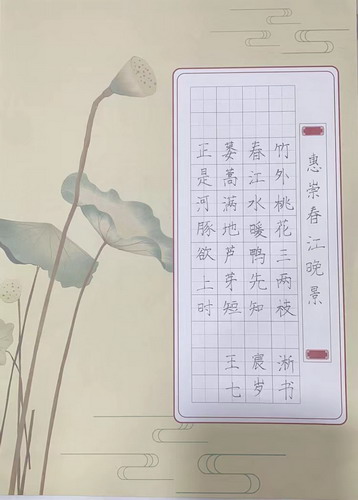 惠崇春江晚景
竹外桃花三两枝
春江水暖鸭先知
蒌蒿满地芦芽短
正是河豚欲上时
王宸淅
七岁书